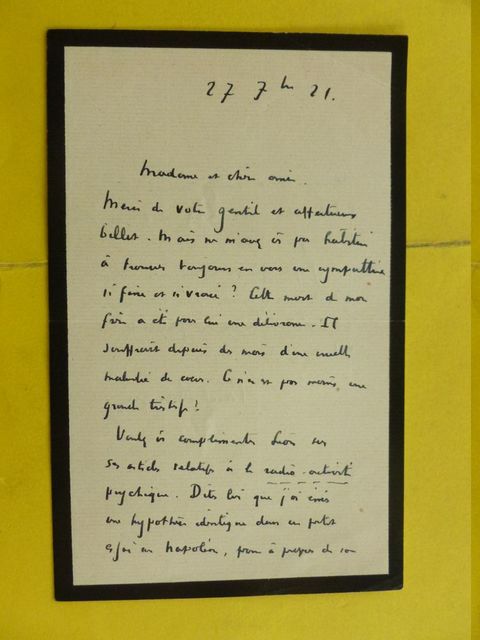 27 7bre 21.
Madame et chère amie.
Merci de votre gentil et affectueux
billet. Mais ne m'avez vs pas habitué
à trouver toujours en vous une sympathie
si fine et si vraie ? Cette mort de mon
frère a été pour lui une délivrance. Il
souffrait depuis des mois d'une cruelle
maladie de cœur. Ce n'en est pas moins une
grande tristesse !
Voulez vs complimenter Léon sur
ses articles relatifs à la radio-activité
psychique. Dites lui que j'ai émis
une hypothèse identique dans un petit
essai sur Napoléon, paru à propos de son